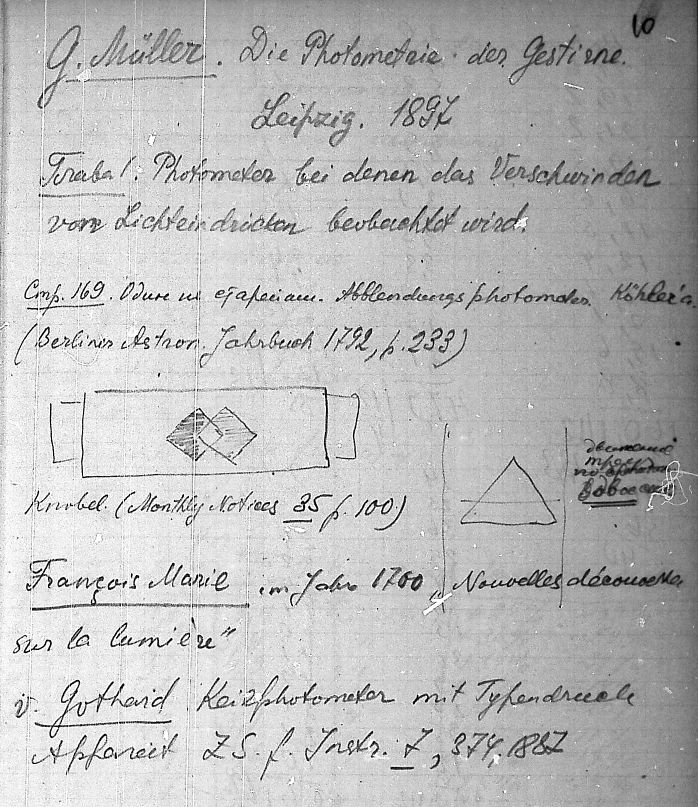 10
G. Müller. Die Photometrie der Gestirne.
Leipzig. 1897
Глава I. Photometer bei denen das Verschwinden
von Lichteindrücken beobachtet wird.
Стр. 169. Один из старейш. Abblendungsphotometer Köhler'a
(Berliner Astron. Jahrbuch 1792, p. 233)
движение
Knobel. (Monthly Notices 35 p. 100)
François Marie im Jahre 1700 „Nouvelles découvertes
sur la lumière"
v. Gothard Keilphotometer mit Typendruck
Apparat ZS. f. Instr. 7, 374, 1887